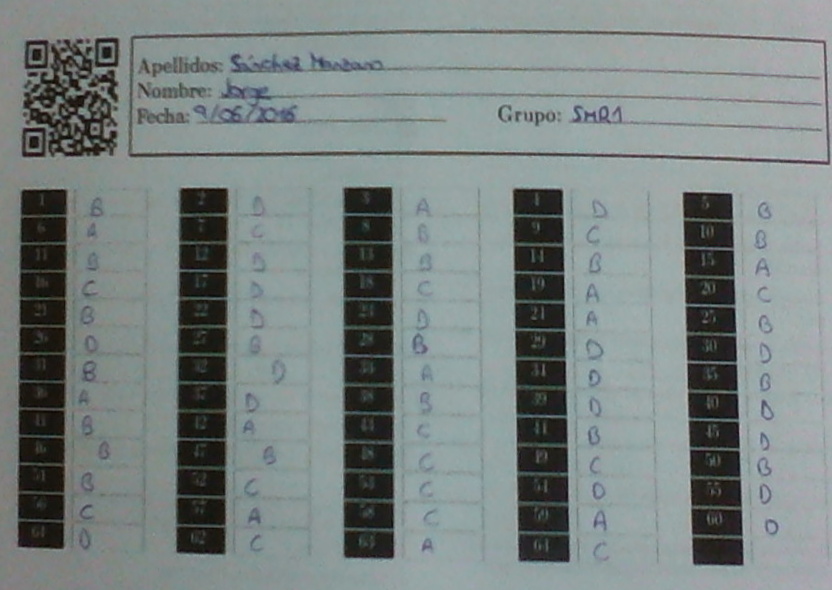 Apellidos: Sánchez Manzano
Nombre: Jorge
Fecha: 9/06/2016 Grupo: SMR1
1 B 2 D 3 A 4 D 5 B
6 A 7 C 8 B 9 C 10 B
11 B 12 D 13 B 14 B 15 A
16 C 17 D 18 C 19 A 20 C
21 B 22 D 23 D 24 A 25 B
26 D 27 B 28 B 29 D 30 D
31 B 32 D 33 A 34 D 35 B
36 A 37 D 38 B 39 D 40 D
41 B 42 A 43 C 44 B 45 D
46 B 47 B 48 C 49 C 50 B
51 B 52 C 53 C 54 D 55 D
56 C 57 A 58 C 59 A 60 D
61 D 62 C 63 A 64 C